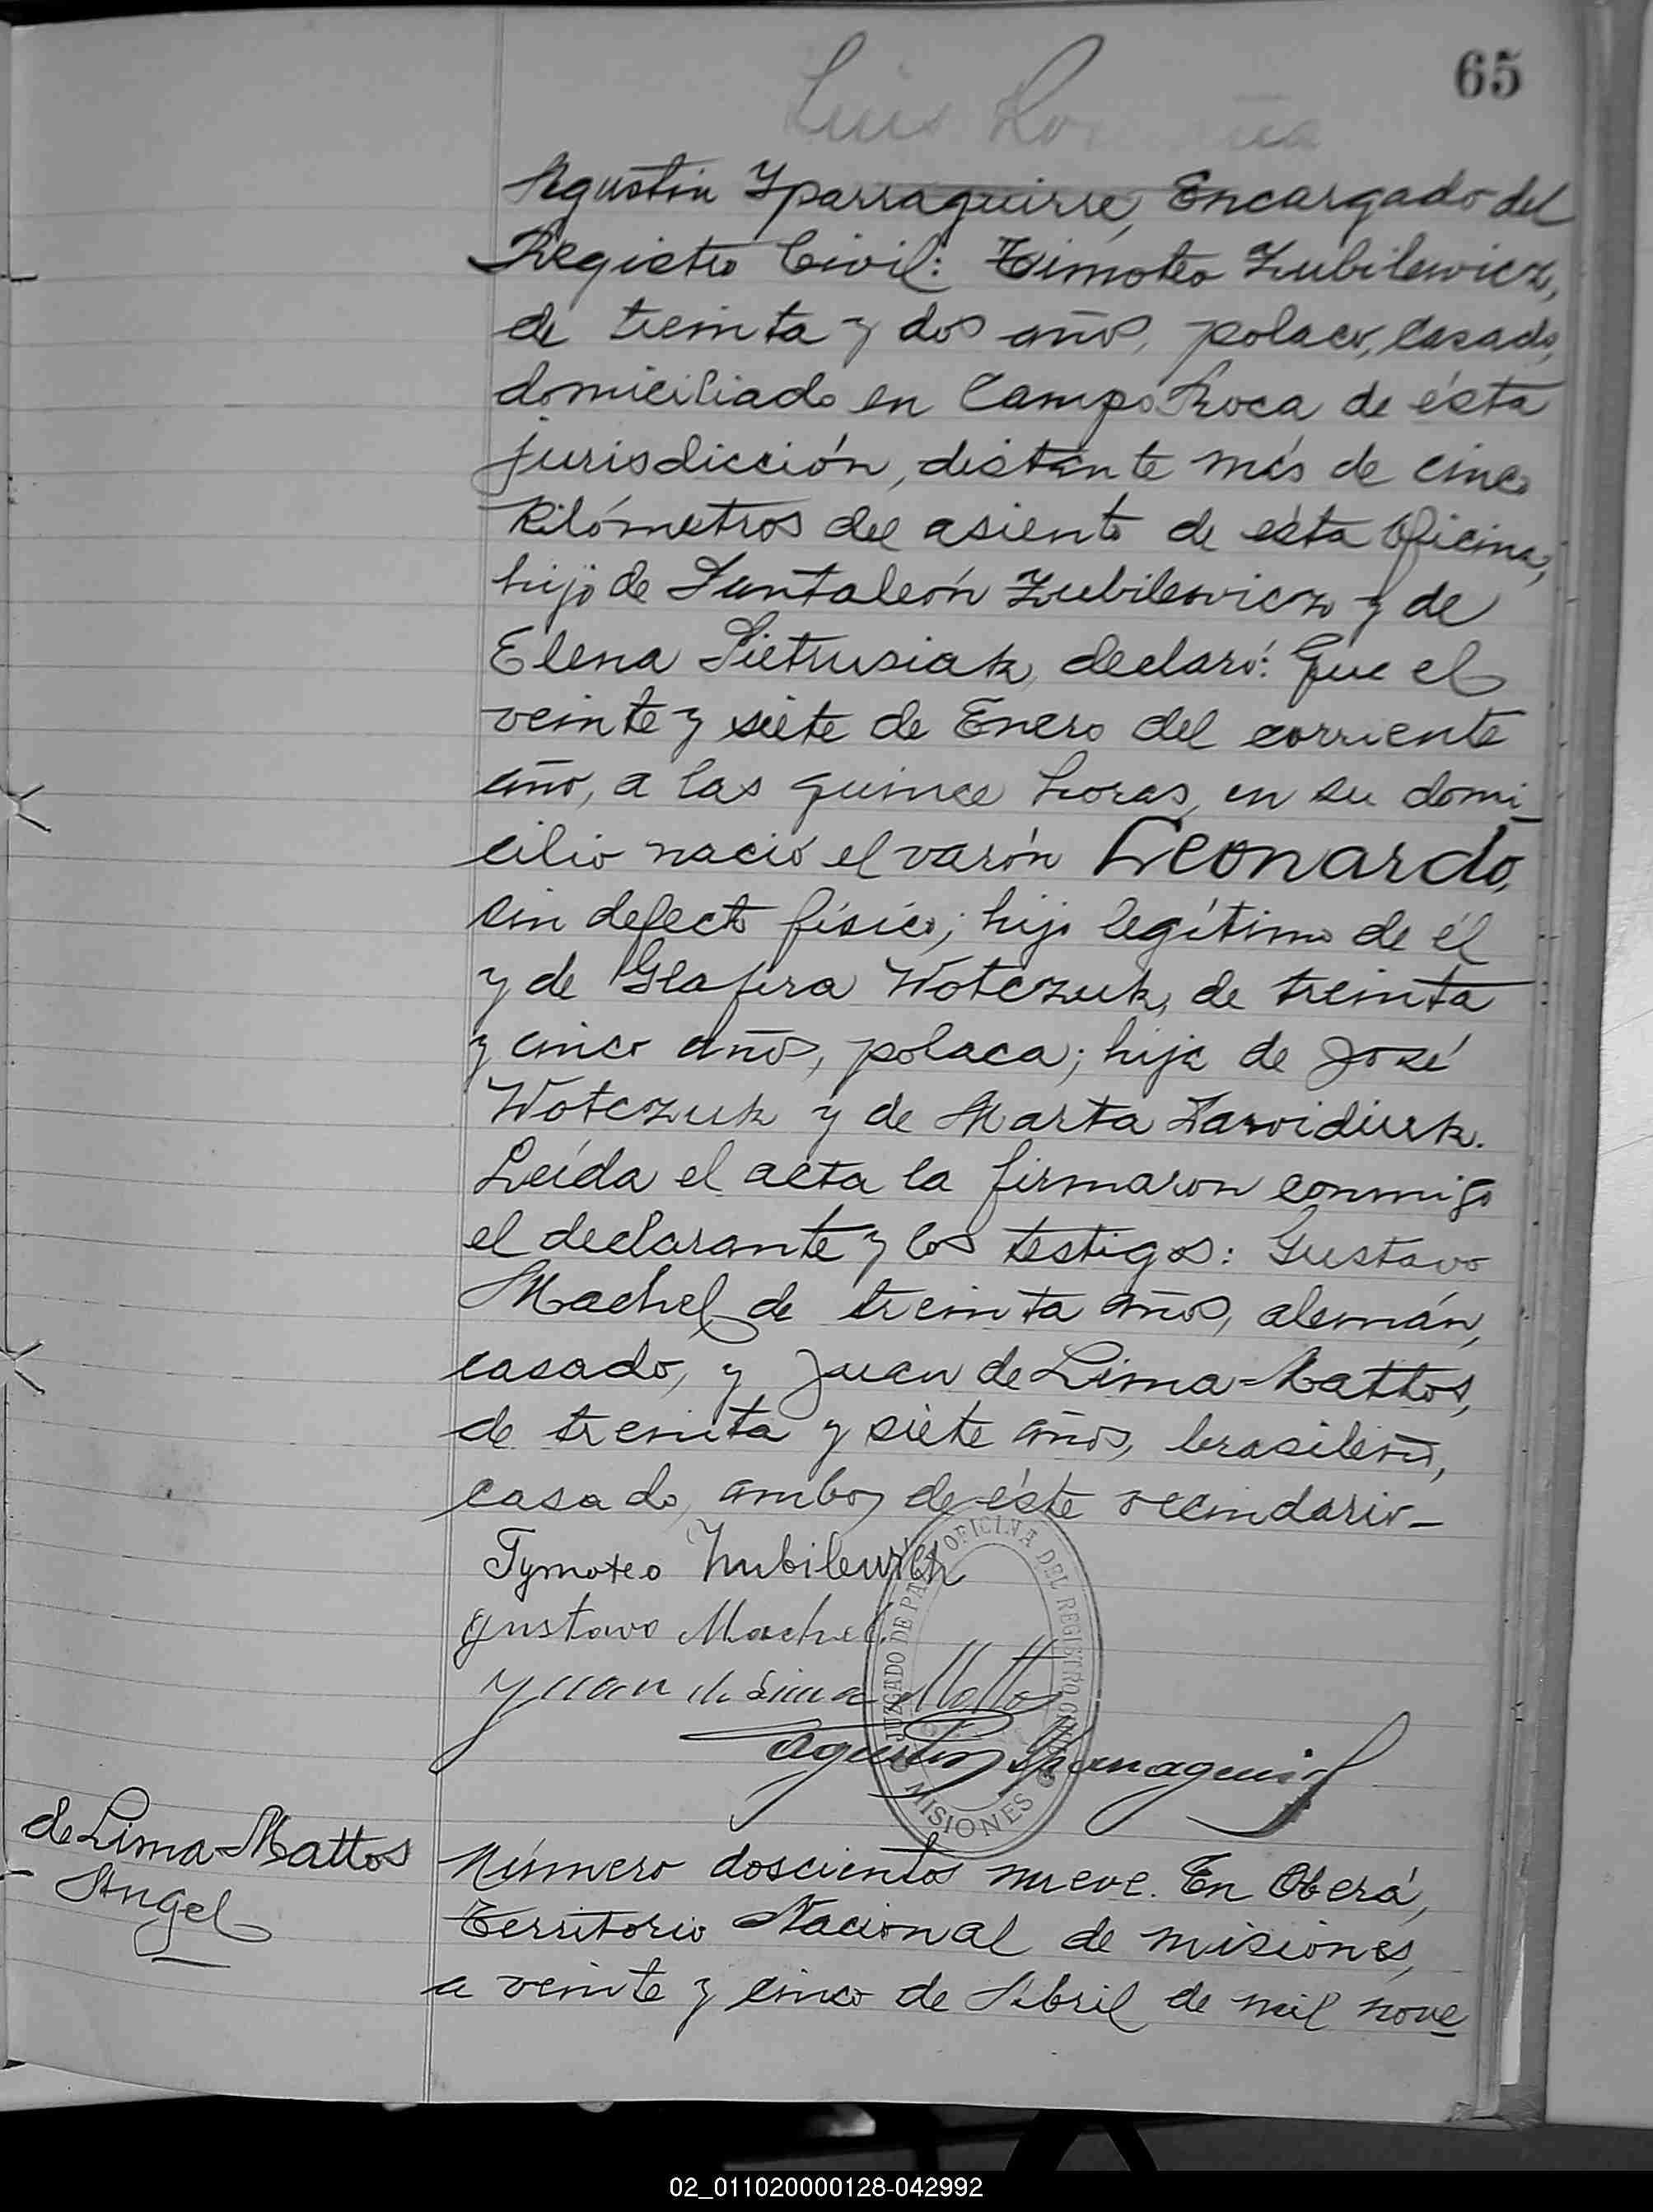 65
Luis
Agustín Yparraguirre, Encargado del
Registro Civil: Timoteo Zubilewicz,
de treinta y dos años, polaco, casado,
domiciliado en Campo Roca de ésta
jurisdicción, distante más de cinco
Kilómetros del asiento de ésta Oficina,
hijo de Pantaleón Zubilewicz y de
Elena Pietrusiak, declaró: Que el
veinte y siete de Enero del corriente
año, a las quince horas, en su domi-
cilio nació el varón Leonardo,
sin defecto físico; hijo legítimo de él
y de Glafira Wotczuk, de treinta
y cinco años, polaca; hija de José
Wotczuk y de Marta Zawidiuk.
Leída el acta la firmaron conmigo
el declarante y los testigos: Gustavo
Machel de treinta años, alemán,
casado, y Juan de Lima-Mattos,
de treinta y siete años, brasileño,
casado, ambos de éste vecindario-
Tymoteo Zubilewicz
Gustavo Machel
Yuan de Lima Motto
Agustín Yparraguirre
JUZGADO DE PAZ Y OFICINA DEL REGISTRO CIVIL
MISIONES
de Lima-Mattos
Angel
Número doscientos nueve. En Oberá,
Territorio Nacional de Misiones,
a veinte y cinco de Abril de mil nove-
02_011020000128-042992